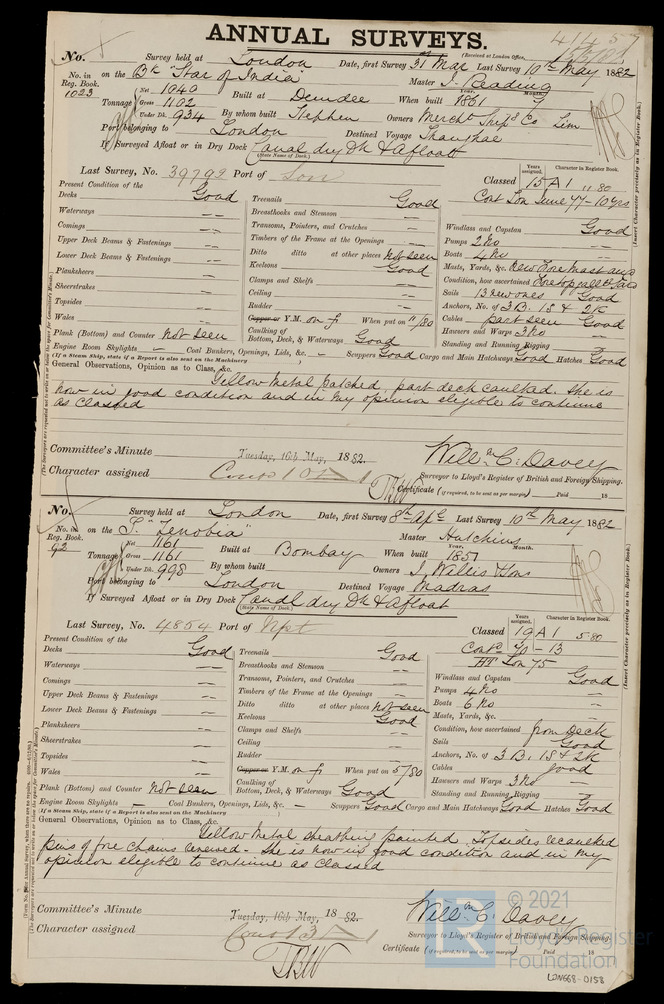 ANNUAL SURVEYS.
(Received at London Office,
No. Survey held at London Date, first Survey 31 Mar Last Survey 10th May 1882
No. in Reg. Book. 1023 on the Bk "Star of India" Master J. Reading
Tonnage Net 1040 Gross 1102 Under Dk. 934 Built at Dundee When built Year. 1861 Month. 7
By whom built Stephen Owners Mercht Ship'g Co Lim
Port belonging to London Destined Voyage Shanghae
If Surveyed Afloat or in Dry Dock Canal dry Dk & Afloat
(State Name of Dock.)
Last Survey, No. 39792 Port of Lon Classed Years assigned. 15 A 1 Character in Register Book. 11.80
Cont Lon June 77-10yrs
Present Condition of the
Decks Good Treenails Good
Waterways Breasthooks and Stemson Windlass and Capstan Good
Comings Transoms, Pointers, and Crutches Pumps 2 No
Upper Deck Beams & Fastenings Timbers of the Frame at the Openings Boats 4 No
Lower Deck Beams & Fastenings Ditto ditto at other places not seen Masts, Yards, &c. New Fore mast and
Planksheers Keelsons Good Condition, how ascertained
Sheerstrakes Clamps and Shelfs Sails 13 new ones Good
Topsides Ceiling Anchors, No. of 3 B. 1S & 2K
Wales Rudder Cables part seen Good
Copper or Y.M. on f. When put on 11/80 Hawsers and Warps 3 No
Plank (Bottom) and Counter Not seen Caulking of Bottom, Deck, & Waterways Good Standing and Running Rigging
Engine Room Skylights — Coal Bunkers, Openings, Lids, &c. — Scuppers Good Cargo and Main Hatchways Good Hatches Good
(If a Steam Ship, state if a Report is also sent on the Machinery
General Observations, Opinion as to Class, &c.
Yellow Metal patched, part deck caulked. She is
now in good condition and in my opinion eligible to continue
as Classed
Committee's Minute Tuesday, 16th May, 1882. Willm C. Davey
Character assigned Surveyor to Lloyd's Register of British and Foreign Shipping.
Certificate (if required, to be sent as per margin) Paid 18
No. Survey held at London Date, first Survey 8th Apl Last Survey 10th May 1882
No. in Reg. Book. 92 on the S. "Zenobia" Master Hutchins
Tonnage Net 1161 Gross 1161 Under Dk. 998 Built at Bombay When built Year. 1851 Month.
By whom built Owners J. Wallis & Sons
Port belonging to London Destined Voyage Madras
If Surveyed Afloat or in Dry Dock Canal dry Dk & Afloat
(State Name of Dock.)
Last Survey, No. 4854 Port of Npt Classed Years assigned. 19 A 1 Character in Register Book. 5.80
Contd 70-13
HT Lon 75
Present Condition of the
Decks Good Treenails Good
Waterways Breasthooks and Stemson Windlass and Capstan Good
Comings Transoms, Pointers, and Crutches Pumps 4 No
Upper Deck Beams & Fastenings Timbers of the Frame at the Openings Boats 6 No
Lower Deck Beams & Fastenings Ditto ditto at other places not seen Masts, Yards, &c.
Planksheers Keelsons Good Condition, how ascertained from Deck
Sheerstrakes Clamps and Shelfs Sails Good
Topsides Ceiling Anchors, No. of 3 B. 1S & 2K
Wales Rudder Cables good
Copper or Y.M. on f. When put on 5/80 Hawsers and Warps 3 No
Plank (Bottom) and Counter Not seen Caulking of Bottom, Deck, & Waterways Good Standing and Running Rigging
Engine Room Skylights — Coal Bunkers, Openings, Lids, &c. — Scuppers Good Cargo and Main Hatchways Good Hatches Good
(If a Steam Ship, state if a Report is also sent on the Machinery
General Observations, Opinion as to Class, &c.
Yellow Metal sheathing painted. Topsides recaulked
pins of fore chains renewed. She is now in good condition and in my
opinion eligible to continue as Classed
Committee's Minute Tuesday, 16th May, 1882. Willm C. Davey
Character assigned Surveyor to Lloyd's Register of British and Foreign Shipping.
Certificate (if required, to be sent as per margin) Paid 18
© 2021
Lloyd's Register
Foundation
LON668-0158